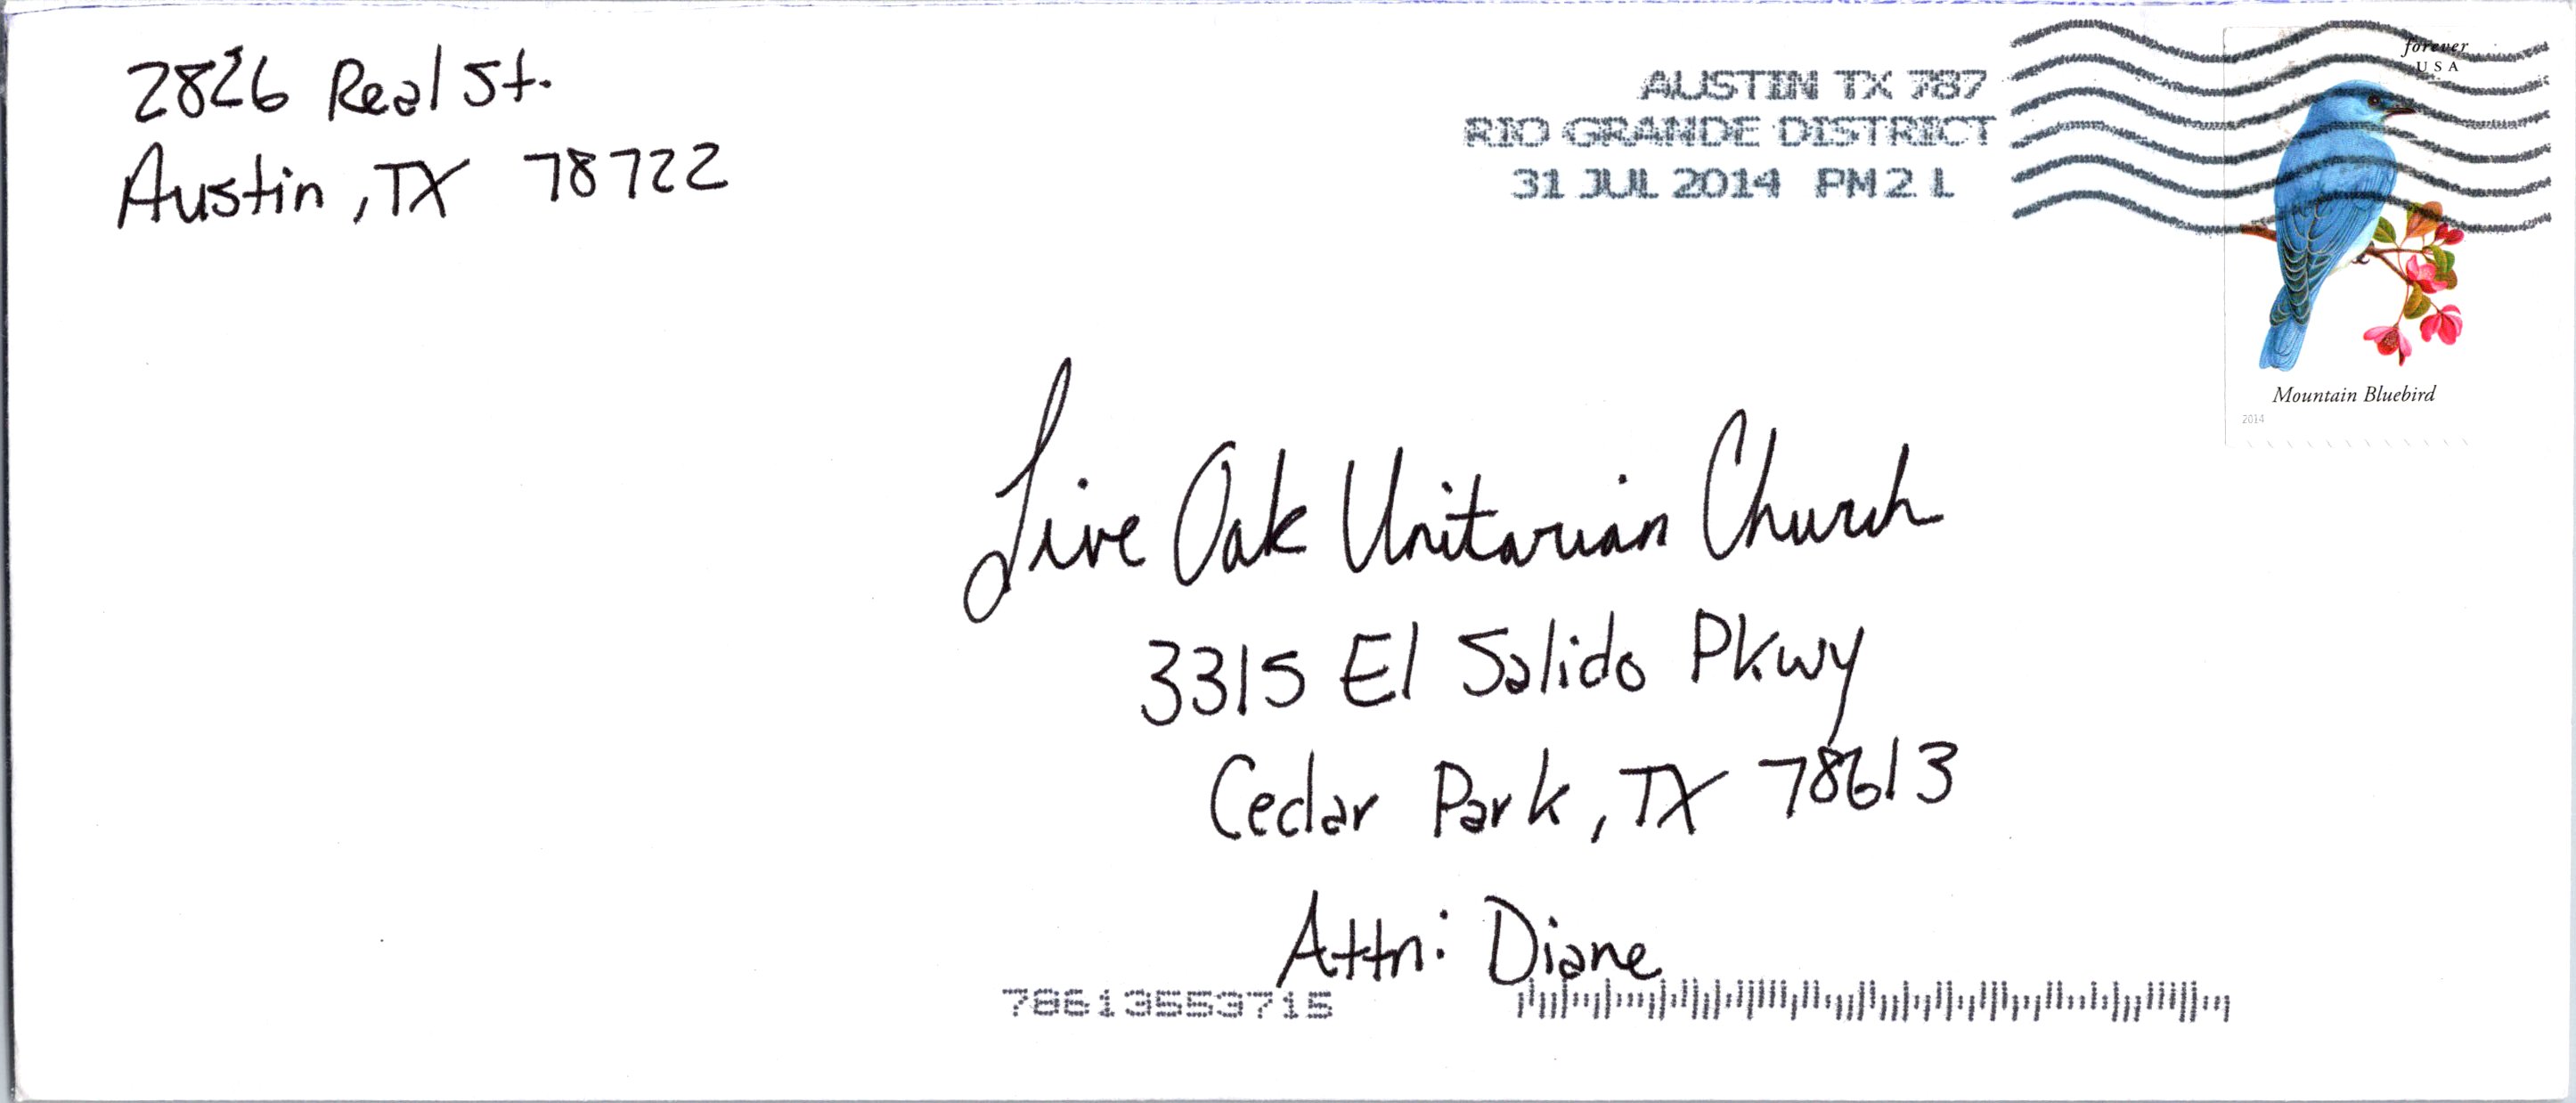 2826 Real St.
Austin, TX 78722
AUSTIN TX 787
RIO GRANDE DISTRICT
31 JUL 2014 PM 2 L
forever
USA
Mountain Bluebird
2014
Live Oak Unitarian Church
3315 El Salido Pkwy
Cedar Park, TX 78613
Attn: Diane
78613553715